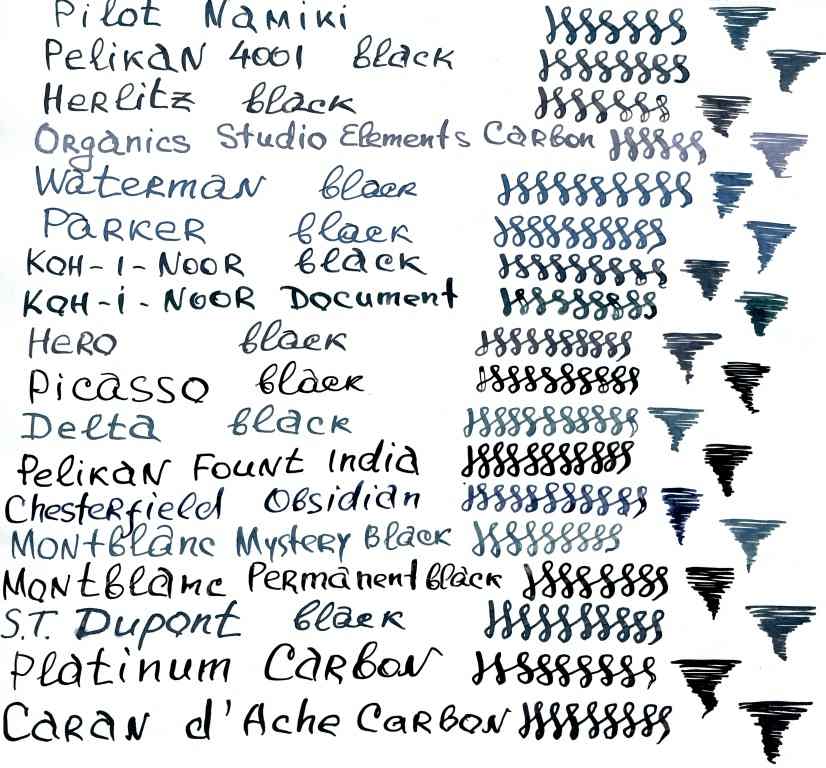 Pilot Namiki
Pelikan 4001 black
Herlitz black
Organics Studio Elements Carbon
Waterman black
Parker black
KOH-I-NOOR black
KOH-i-NOOR Document
Hero black
Picasso black
Delta black
Pelikan Fount India
Chesterfield Obsidian
Montblanc Mystery Black
Montblanc Permanent black
S.T. Dupont black
Platinum Carbon
Caran d'Ache Carbon